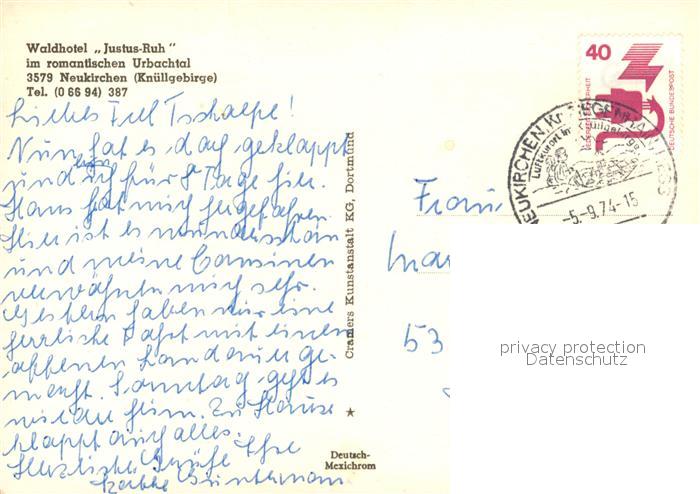 Waldhotel „Justus-Ruh"
im romantischen Urbachtal
3579 Neukirchen (Knüllgebirge)
Tel. (0 66 94) 387
Liebes Frl Tschaepe!
Nun hat es doch geklappt
und ich bin für 8 Tage hier.
Hans hat mich hergefahren
Hier ist es wunderschön
und meine Cousinen
verwöhnen mich sehr.
Gestern haben wir eine
herrliche Fahrt mit einem
offenen Landauer ge-
macht. Sonntag geht es
wieder heim. Zu Hause
klappt auch alles.
Herzliche Grüße Ihre
Cramers Kunstanstalt KG, Dortmund
Deutsch-
Mexichrom
40
DEUTSCHE BUNDESPOST
NEUKIRCHEN
Luftkurort im Knüllgebirge
-5.-9.74-15
Frau
53
privacy protection
Datenschutz